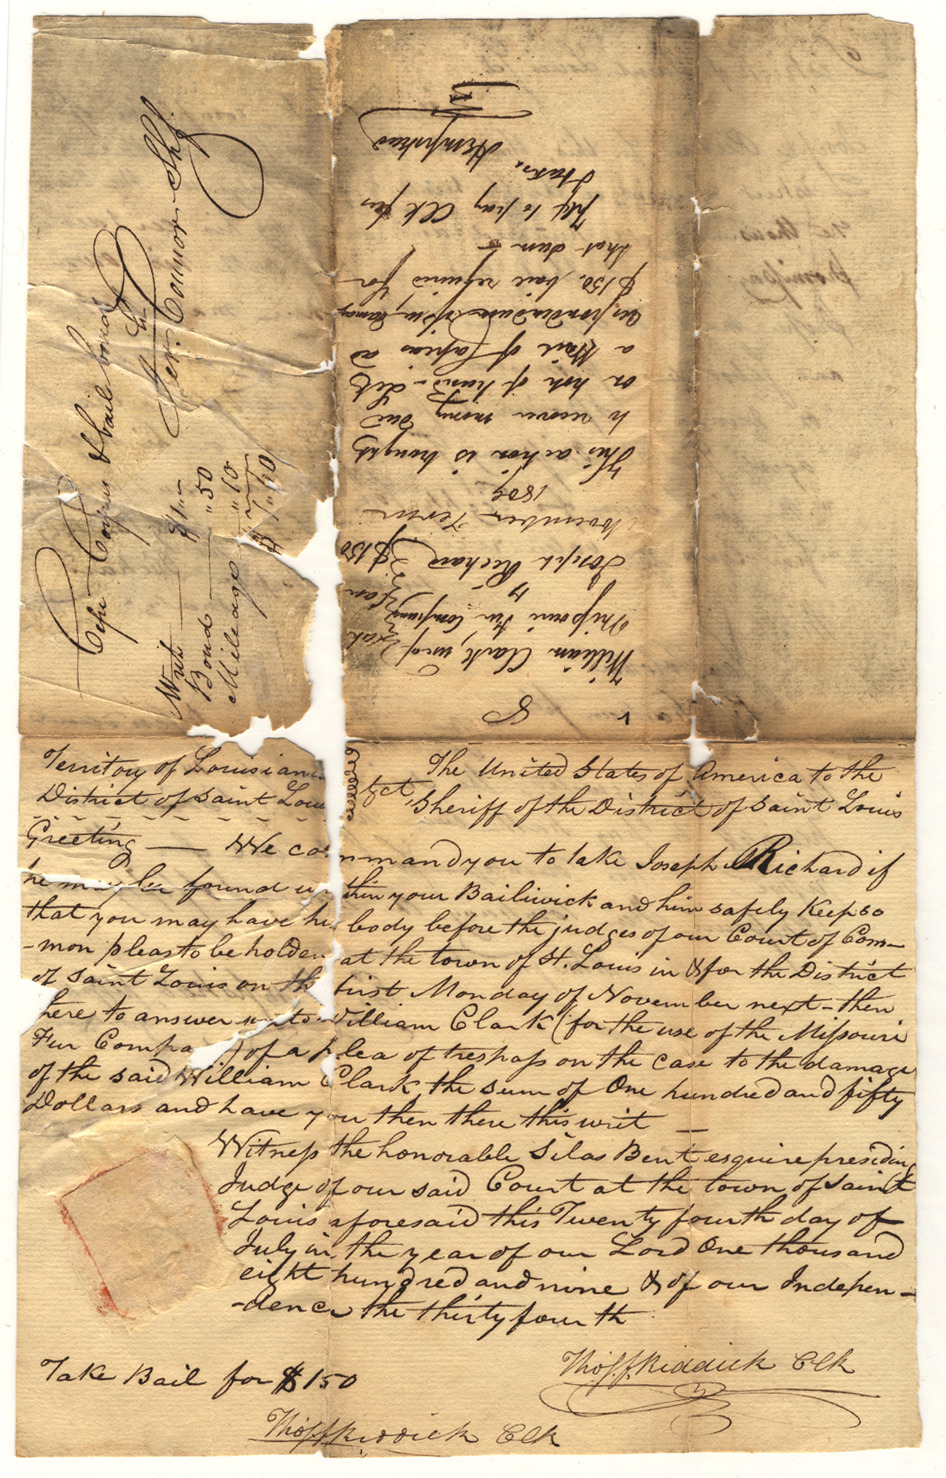 Cepi Corpus & bail bond
Jer. Connor Shff
Writ — $1"
Bond — "50
Mileage "10
$1"60
William Clark use of
Missouri Fur Company
vs
Joseph Richard
$150
November Term
1809
This action is brought
to recover money due
on note of hand — Let
a Writ of Capias ad
Respondendum issue, damages
$150, bail required for
that sum
Plff to pay Clk fees
Hempstead
Territory of Louisiana
District of Saint Louis Sct
The United States of America to the
Sheriff of the District of Saint Louis
Greeting — We command you to take Joseph Richard if
he may be found within your Bailiwick and him safely Keep so
that you may have his body before the judges of our Court of Com-
-mon pleas to be holden at the town of St. Louis in & for the District
of Saint Louis on the first Monday of November next - then
there to answer unto William Clark (for the use of the Missouri
Fur Company) of a plea of trespass on the case to the damage
of the said William Clark the sum of One hundred and fifty
Dollars and have you then there this writ —
Witness the honorable Silas Bent esquire presiding
Judge of our said Court at the town of Saint
Louis aforesaid this Twenty fourth day of
July in the year of our Lord One thousand
eight hundred and nine & of our Indepen-
-dence the thirty fourth
Thos. F. Riddick Clk
Take Bail for $150
Thos F Riddick Clk